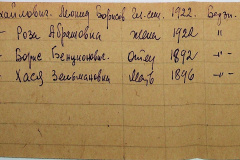 хайлович. Леонид Борисов Гл. сем. 1922. Безп.
- Роза Абрамовна жена 1922 -"-
- Борис Бенционович. отец 1892 -"-
- Хася Зельмановна мать 1896 -"-